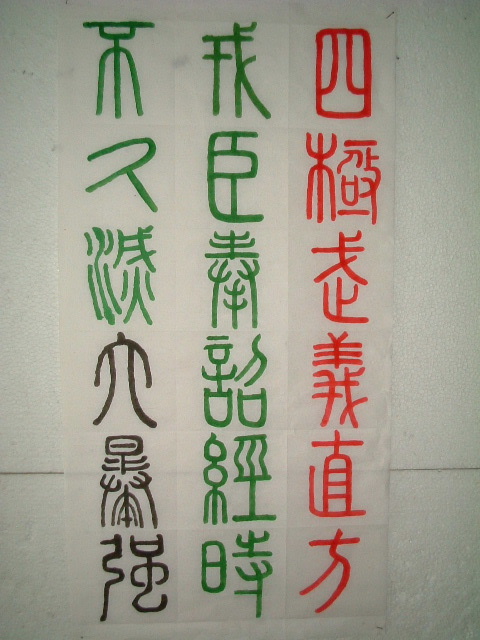 四極武義直方
戎臣奉詔經時
不久滅六暴强